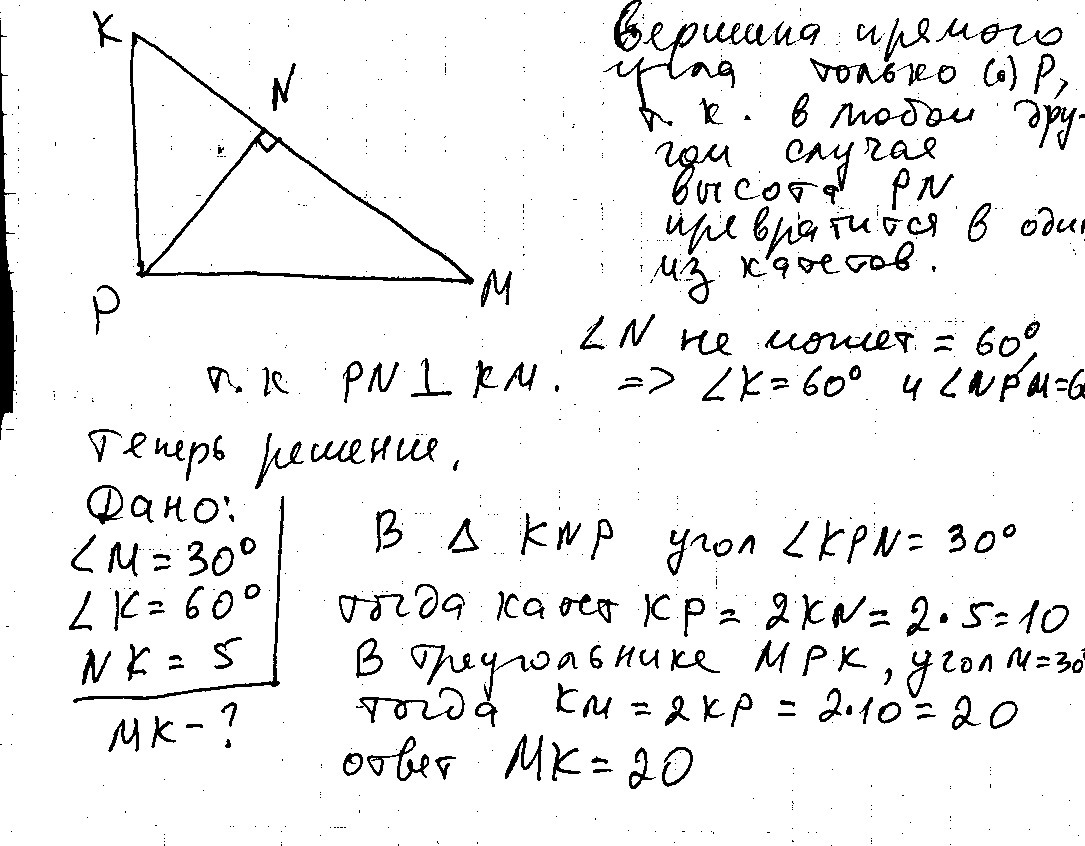 K
N
P
M
Вершина прямого
угла только (·) P,
т. к. в любом дру-
гом случае
высота PN
превратится в один
из катетов.
∠N не может = 60°,
т. к PN⊥KM. => ∠K=60° и ∠NPM=6
Теперь решение.
Дано:
∠M=30°
∠K=60°
NK=5
MK-?
В Δ KNP угол ∠KPN=30°
тогда катет KP=2KN=2·5=10
В треугольнике MPK, угол M=30°
тогда KM=2KP=2·10=20
ответ MK=20